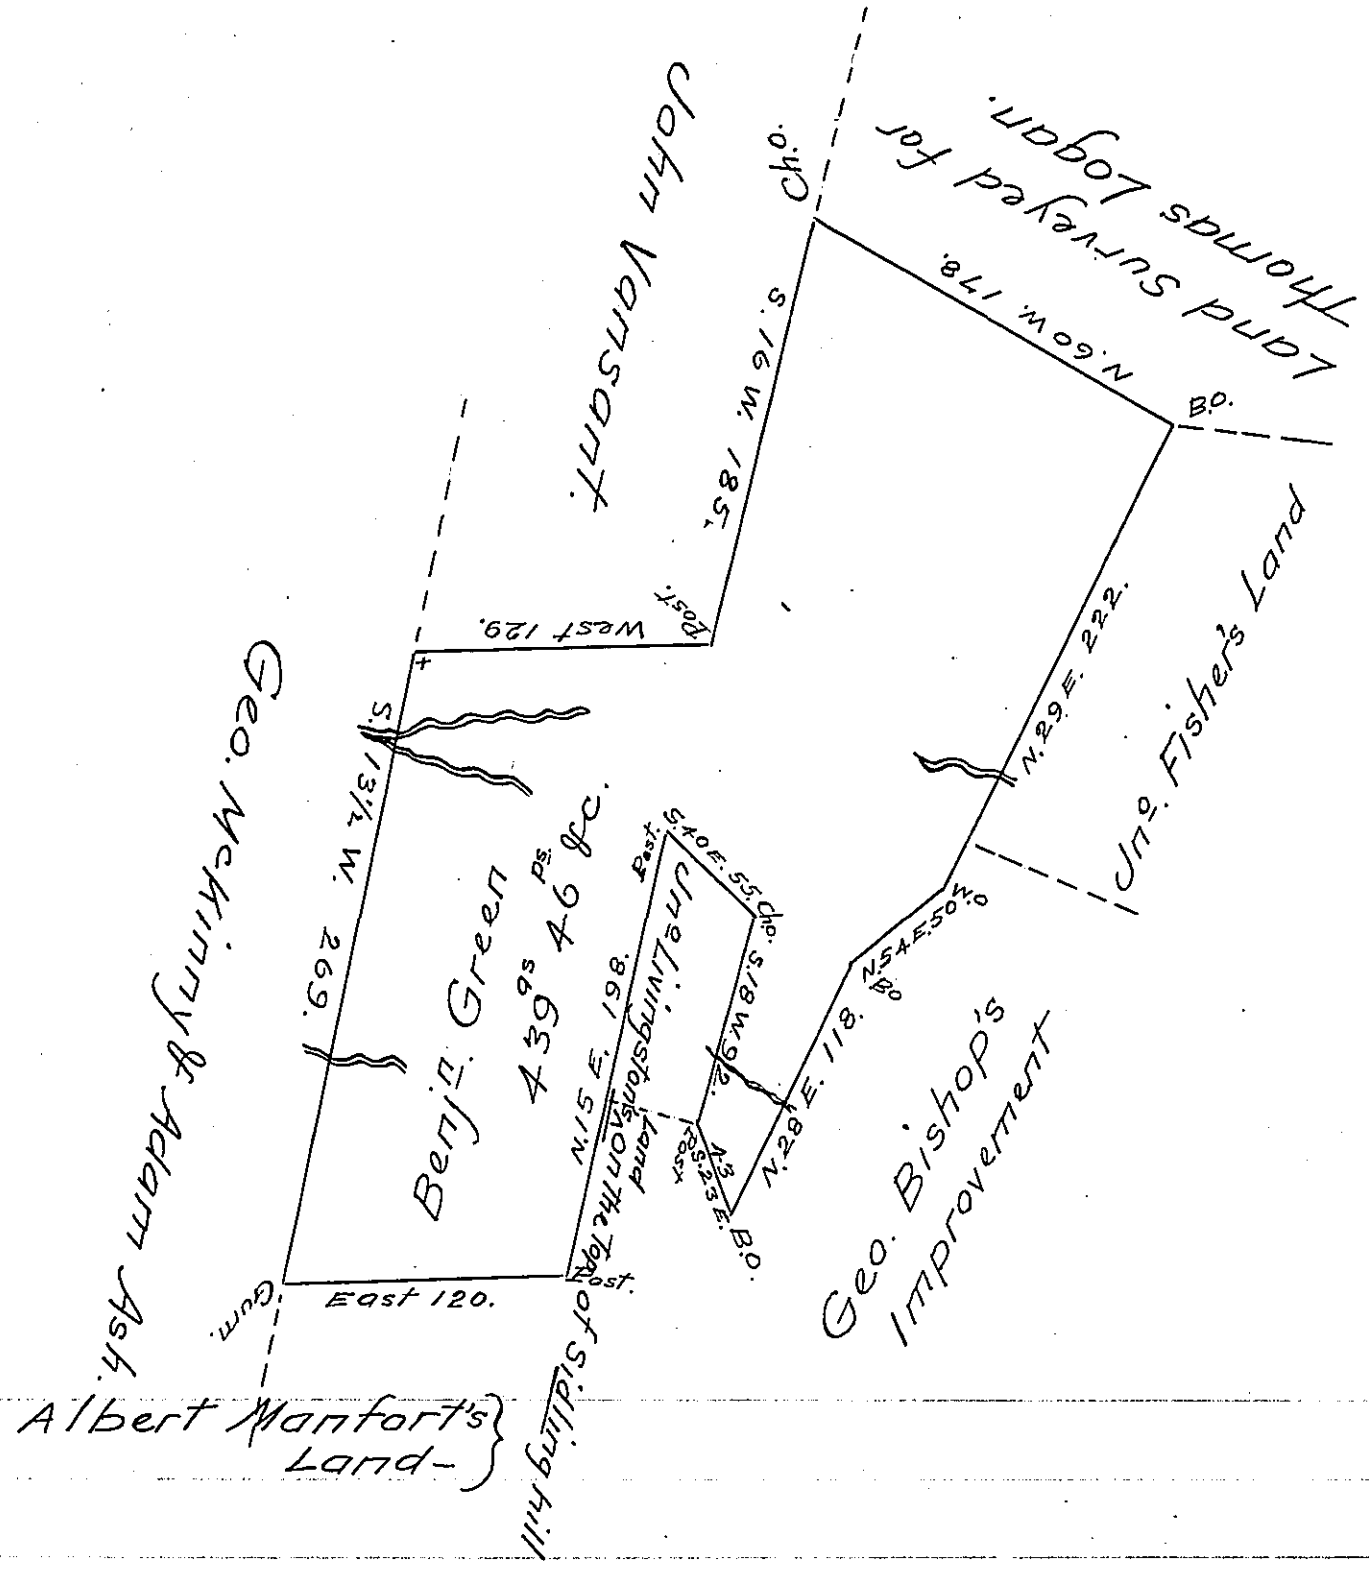 Land Surveyed for
Thomas Logan.
John Vansant.
Ch.o.
N. 60 W. 178.
B.O.
S. 16 W. 185.
Jno. Fisher's Land
N. 29 E. 222.
Post.
West 129.
+
S. 13½ W. 269.
Geo. McKinny & Adam Ash.
Benjn. Green
439 as 46 ps. &c.
Post.
S. 40 E. 55.
Ch.o.
S. 18 W. 92.
Jno. Livingston's Land
on the Top of Sidling hill
N. 15 E. 198.
W.O
N. 54 E. 50
B.O
N. 28 E. 118.
Post
S. 23 E. 43
B.O.
Geo. Bishop's
Improvement
Gum.
East 120.
Post.
Albert Manfort's
Land-